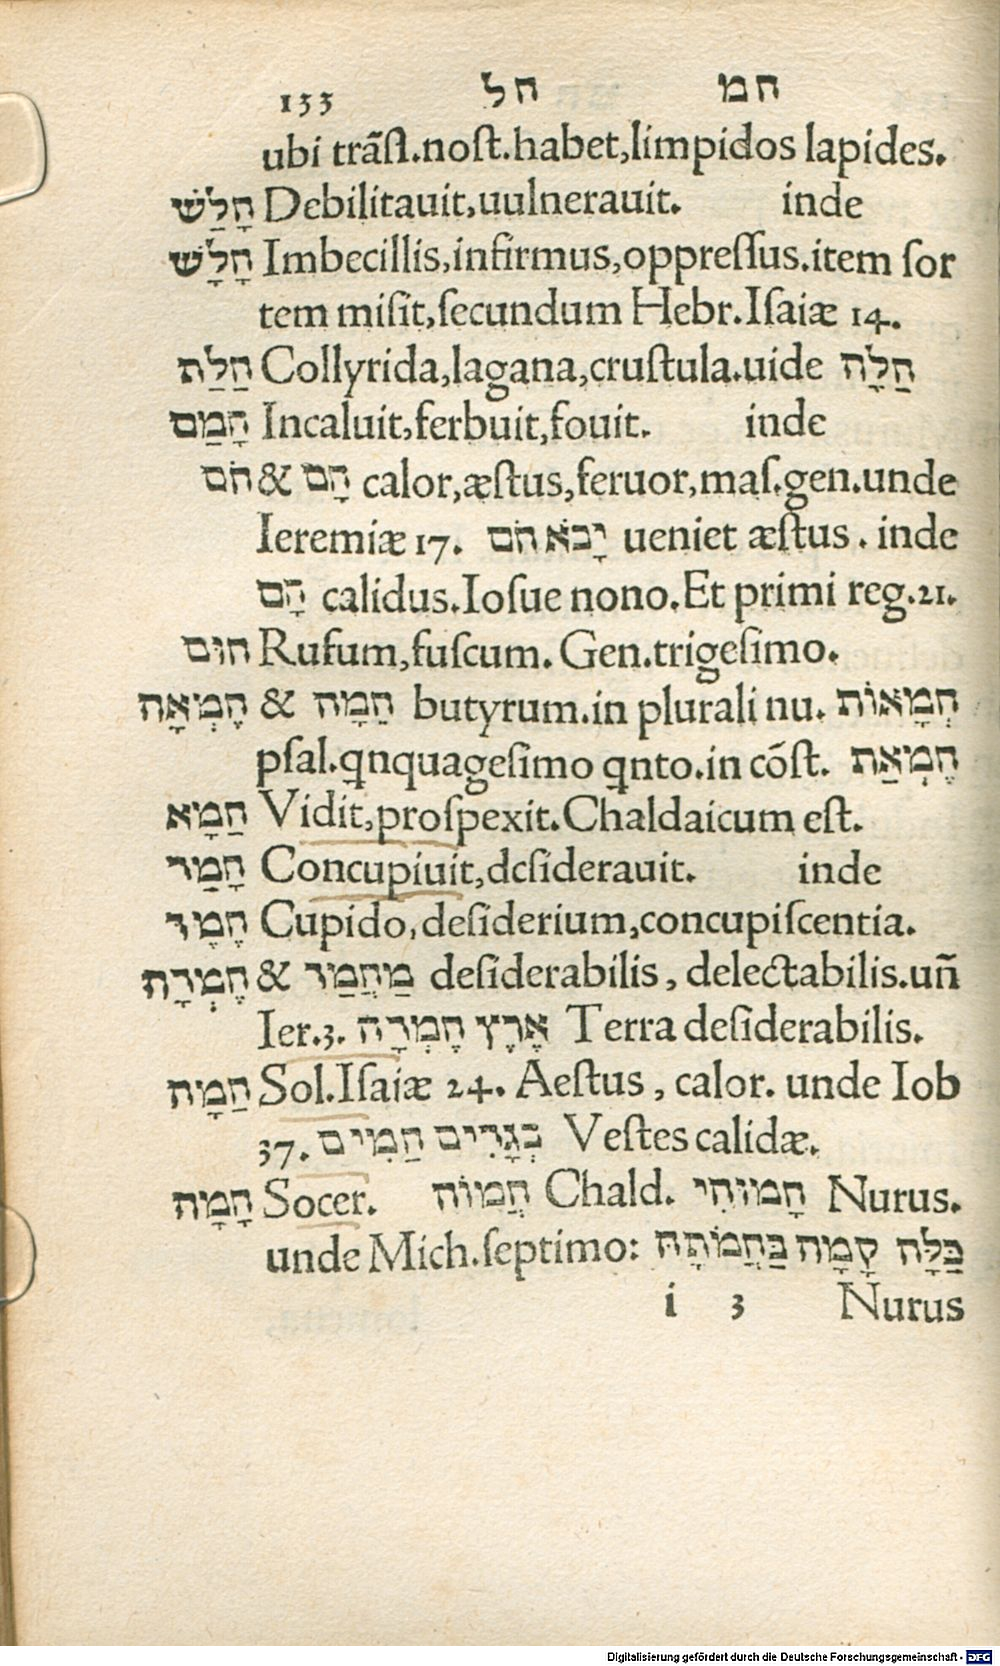 133 חל חמ
ubi trãſl.noſt.habet,limpidos lapides.
חָלַשׁ Debilitauit,uulnerauit. inde
חָלָשׁ Imbecillis,infirmus,oppreſſus.item ſor
tem miſit,ſecundum Hebr.Iſaiæ 14.
חַלַּת Collyrida,lagana,cruſtula.uide חַלָּה
חָמַם Incaluit,ferbuit,fouit. inde
חֹם & חָם calor,æſtus,feruor,maſ.gen.unde
Ieremiæ 17. יָבֹא חֹם ueniet æſtus . inde
חָם calidus.Ioſue nono.Et primi reg.21.
חוּם Rufum,fuſcum. Gen.trigeſimo.
חֶמְאָה & חֵמָה butyrum.in plurali nu. חְמָאוֹת
pſal.qnquageſimo qnto.in cõſt. חֶמְאַת
חַמָא Vidit,proſpexit.Chaldaicum eſt.
חָמַד Concupiuit,deſiderauit. inde
חֶמֶד Cupido,deſiderium,concupiſcentia.
חֶמְדָּת & מַחֲמַד deſiderabilis, delectabilis.uñ
Ier.3. אֶרֶץ חֶמְדָּה Terra deſiderabilis.
חַמָּה Sol.Iſaiæ 24. Aeſtus, calor. unde Iob
37. בְּגָדִים חַמִּים Veſtes calidæ.
חָמָה Socer. חֲמוֹה Chald. Nurus.
unde Mich.ſeptimo: כַּלָּה קָמָה בַּחֲמֹתָהּ
i 3 Nurus
Digitalisierung gefördert durch die Deutsche Forschungsgemeinschaft - DFG